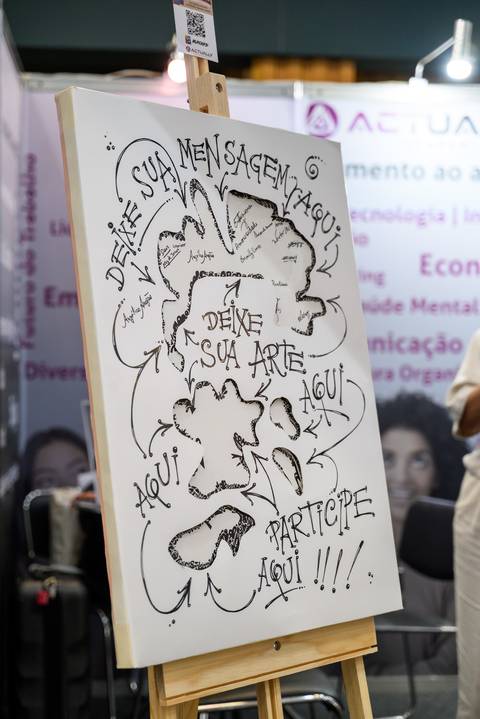 ACTUAL
mento ao a
ecnologia | In
Econ
Saúde Mental
unicação
ra Organ
Futuro do Trabalho
Em
Divers
DEIXE SUA MENSAGEM AQUI
DEIXE
SUA ARTE
AQUI
AQUI
PARTICIPE
AQUI !!!!